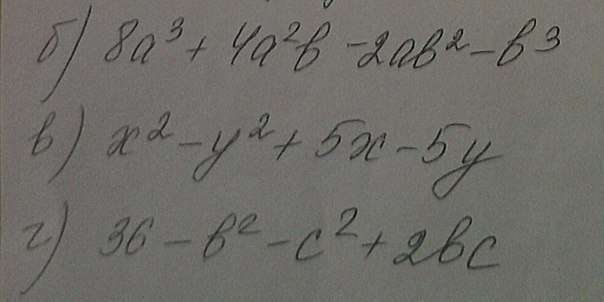 б) 8a³ + 4a²b - 2ab² - b³
в) x² - y² + 5x - 5y
г) 36 - b² - c² + 2bc